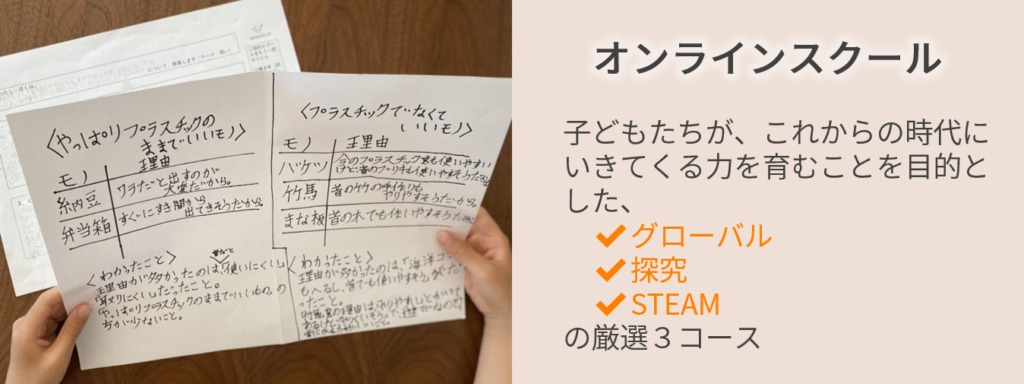 〈やっぱりプラスチックの
ままでいいモノ〉
モノ 理由
納豆 ワラだと出すのが
大変だから。
弁当箱 すぐにすき間から
出てきそうだから。
〈わかったこと〉
理由が多かったのは、「使いにくい」
やっぱりプラスチックのままでいいもの、の
方が少ないこと。
〈プラスチックでなくて
いいモノ〉
モノ 理由
バケツ 今のプラスチック製も使いやすい
けど、昔のブリキも使いやすそうだから。
竹馬 昔の竹の手作りも
やりやすそうだから。
まな板 昔の木でも使いやすそうだから。
〈わかったこと〉
理由が多かったのは、「海洋ゴミ
もへるし、昔でも使いやすそう」だ
ったこと。
オンラインスクール
子どもたちが、これからの時代に
いきてくる力を育むことを目的と
した、
グローバル
探究
STEAM
の厳選３コース